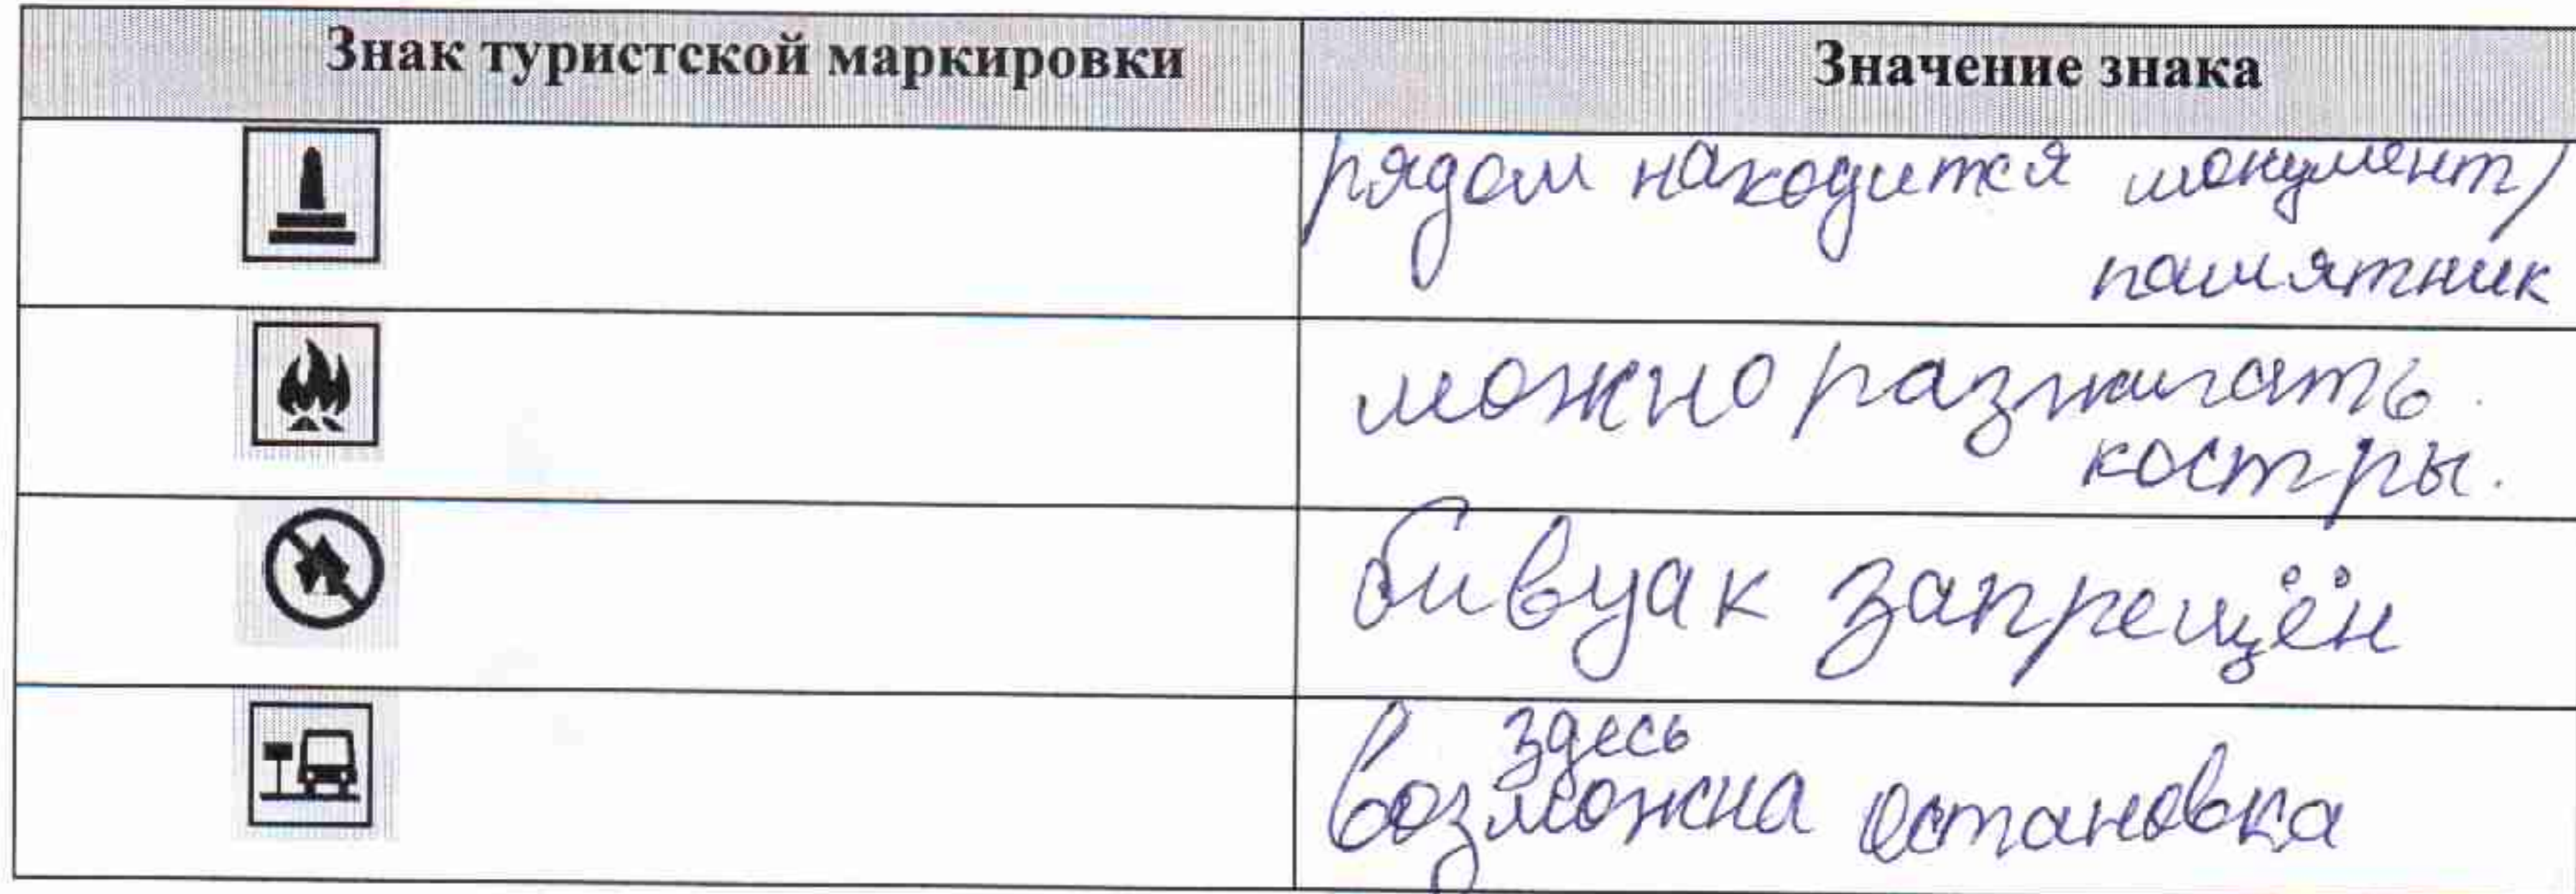 Знак туристской маркировки
Значение знака
рядом находится монумент/
памятник
можно разжигать
костры.
бивуак запрещён
здесь
возможна остановка